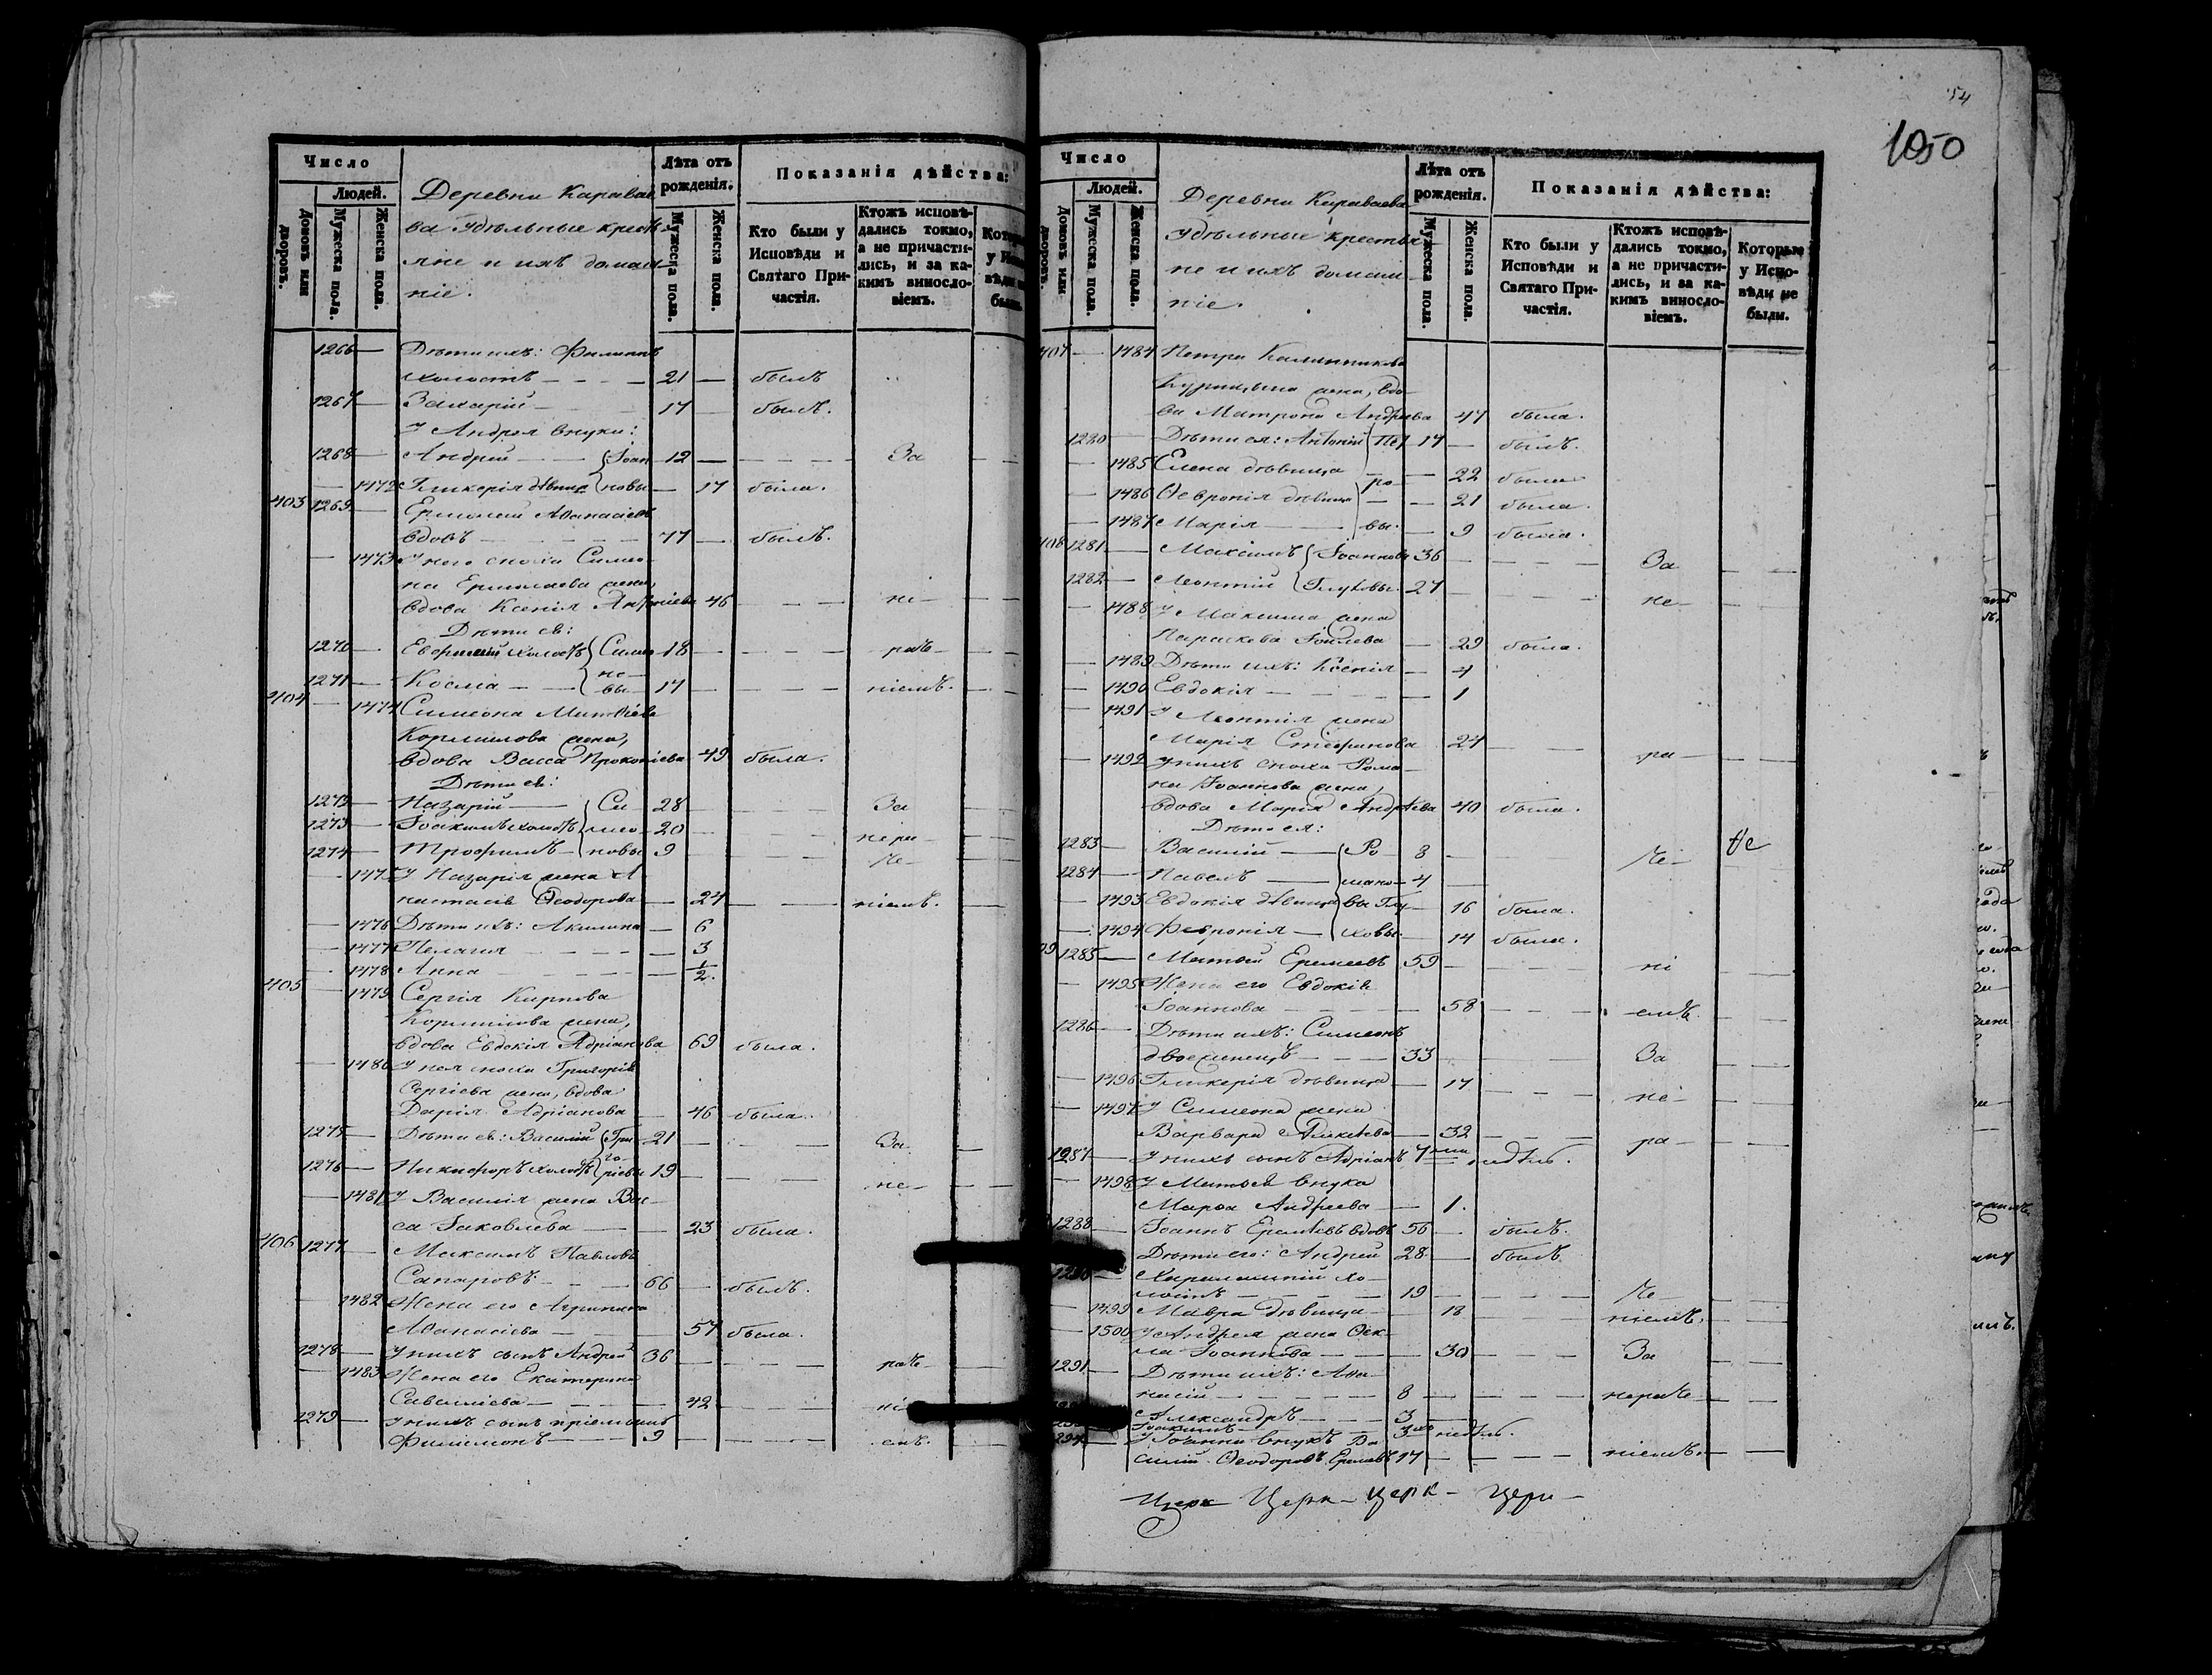 Число
Людей.
Домовъ или дворовъ.
Мужеска пола.
Женска пола.
Деревни Караваева
Удѣльные крестьяне и ихъ домашніе.
Лѣта отъ рожденія.
Мужеска пола.
Женска пола.
Показанія дѣйства:
Кто были у Исповѣди и Святаго Причастія.
Ктожъ исповѣдались токмо, а не причастились, и за какимъ винословіемъ.
1266 — Дѣти ихъ: Филиппъ
холостъ — 21 — былъ
1267 — Захарій — 17 — былъ.
У Андрея внуки:
1268 — Андрей — Іоан 12 — За
— 1472 Гликерія дѣвица новы — 17 была.
403 1269 — Ермолай Аѳанасіевъ
вдовъ — 77 — былъ.
— 1473 У него сноха Симео
на Ермолаева жена,
вдова Ксенія 46 — не
Дѣти ея:
1270 — холостъ Симео 18 — раче
1271 — Косма — новы 17 — ніемъ.
404 — 1474 Симеона Матвѣева
Кормилова жена,
вдова Васса Прокопіева 49 была.
Дѣти ея:
1272 — Назарій — Си 28 — За
1273 — Іоакимъ холостъ мео 20 — нера
1274 — Трофимъ — новы 9 — че
— 1475 У Назарія жена А
настасія Ѳеодорова — 24 — ніемъ.
— 1476 Дѣти ихъ: Акилина — 6
— 1477 Пелагия — 3
— 1478 Анна — 1/2
405 — 1479 Сергія Карпова
Кормилова жена,
вдова Евдокія Адріанова 69 была.
— 1480 У нея сноха Григорія
Сергіева жена, вдова
Дарія Адріанова — 46 была.
1275 — Дѣти ея: Василій Гри 21 — За
1276 — Никифоръ холостъ горіевы 19 — не
— 1481 У Василія жена Вас
са Іаковлева — 23 была.
406 1277 — Максимъ Павловъ
Сапаровъ — 66 — былъ.
— 1482 Жена его Агрипина
Аѳанасіева — 57 была.
1278 — У нихъ сынъ Андрей 36 — раче
— 1483 Жена его Екатерина
Савеліева — 42 — ні
1279 — У нихъ сынъ пріемышъ
Филимонъ — 9 — емъ.
54
1050
Число
Людей.
Домовъ или дворовъ.
Мужеска пола.
Женска пола.
Деревни Караваева
удѣльные крестьяне и ихъ домашніе.
Лѣта отъ рожденія.
Мужеска пола.
Женска пола.
Показанія дѣйства:
Кто были у Исповѣди и Святаго Причастія.
Ктожъ исповѣдались токмо, а не причастились, и за какимъ винословіемъ.
Которые у Исповѣди не были.
407 — 1484 Петра Калинникова
жена, вдо
ва Матрона Андреева 47 была.
1280 — Дѣти ея: Антоній Пет 17 — былъ.
— 1485 Елена дѣвица ро — 22 была
— 1486 Ѳевронія дѣвица — 21 была.
— 1487 Марія — вы. — 9 была.
408 1281 — Максимъ Іоанновы 36 — За
1282 — Леонтій Глуховы 27 — не
— 1488 У Максима жена
Параскева — 29 была.
— 1489 Дѣти ихъ: Ксенія — 4
— 1490 Евдокія — 1
— 1491 У Леонтія жена
Марія Стефанова 24 — ра
— 1492 У нихъ сноха Рома
на Іоаннова жена,
вдова Марія Андреева 40 была.
Дѣти ея:
1283 — Василій — Ро 8 — че
1284 — Павелъ — мано 4 —
— 1493 Евдокія дѣвица вы Глу 16 была.
— 1494 Февронія — ховы — 14 была.
409 1285 — Матвей Еремеевъ 59 — ні
— 1495 Жена его Евдокія
Іоаннова — 58 — емъ.
1286 — Дѣти ихъ: Симеонъ
двоеженецъ — 33 — За
— 1496 Гликерія дѣвица — 17 — не
— 1497 У Симеона жена
Варвара Алексѣева — 32 — ра
1287 — У нихъ сынъ Адріанъ 7ми недѣль.
— 1498 У Матвея внука
Марѳа Андреева — 1.
1288 — Іоаннъ Еремѣевъ вдовъ 56 — былъ.
Дѣти его: Андрей 28 — былъ
Харлампій хо
лостъ — 19 — че
— 1499 Мавра дѣвица — 18 — ніемъ.
— 1500 У Андрея жена Ѳек
ла Іоаннова — 30 — За
1291 — Дѣти ихъ: Аѳа
насій — 8 — нераче
Александръ — 3
Іоакимъ — 3хъ недѣль.
1294 — У Іоанна внукъ Ва
силій Ѳеодоровъ Еремѣевъ 17 — ніемъ.
Церк Церк — Церк — Церк —